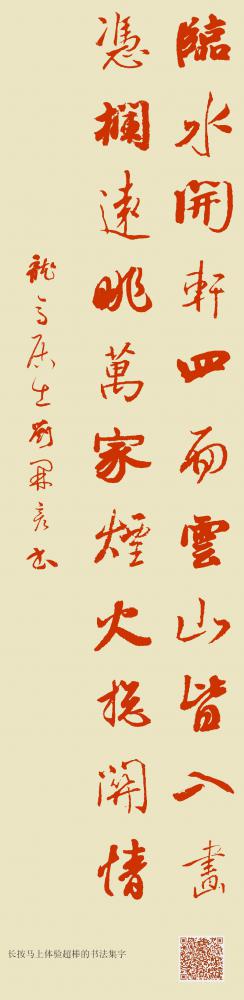 臨水開軒四面雲山皆入畫
憑欄遠眺萬家煙火總關情
居士劉
长按马上体验超棒的书法集字